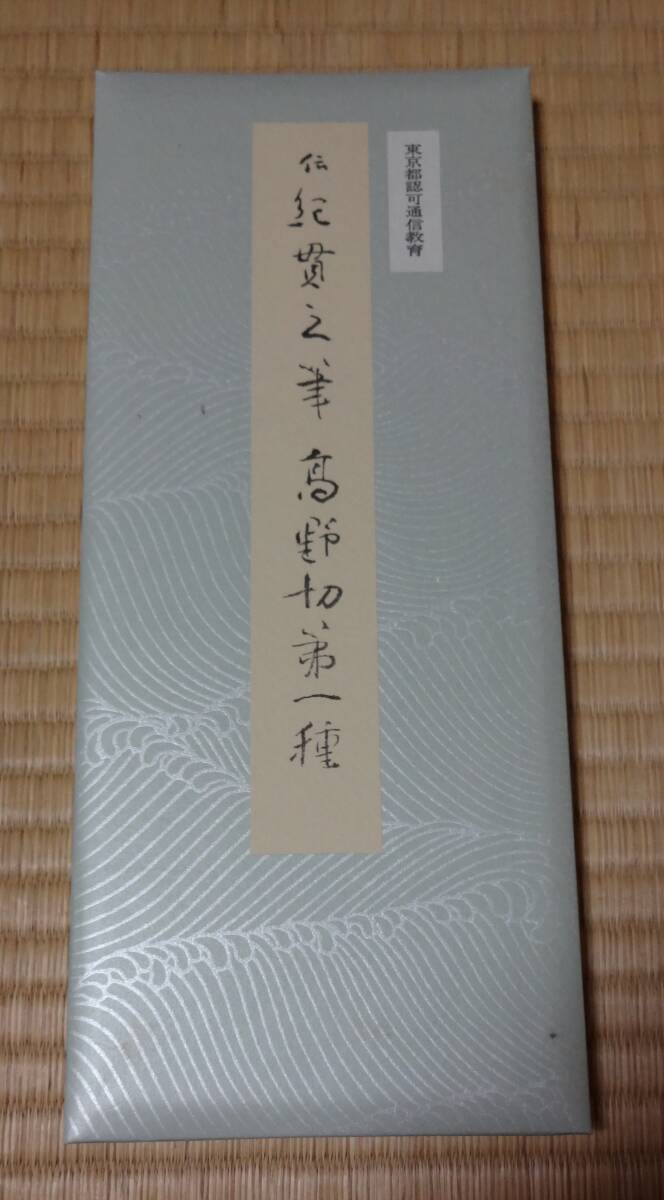 東京都認可通信教育
伝紀貫之筆高野切第一種